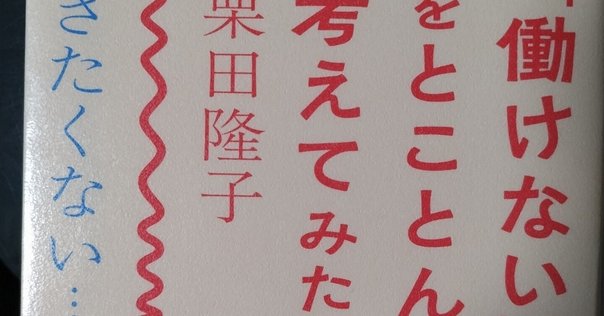 働けない
をとことん
考えてみた
栗田隆子
きたくない…